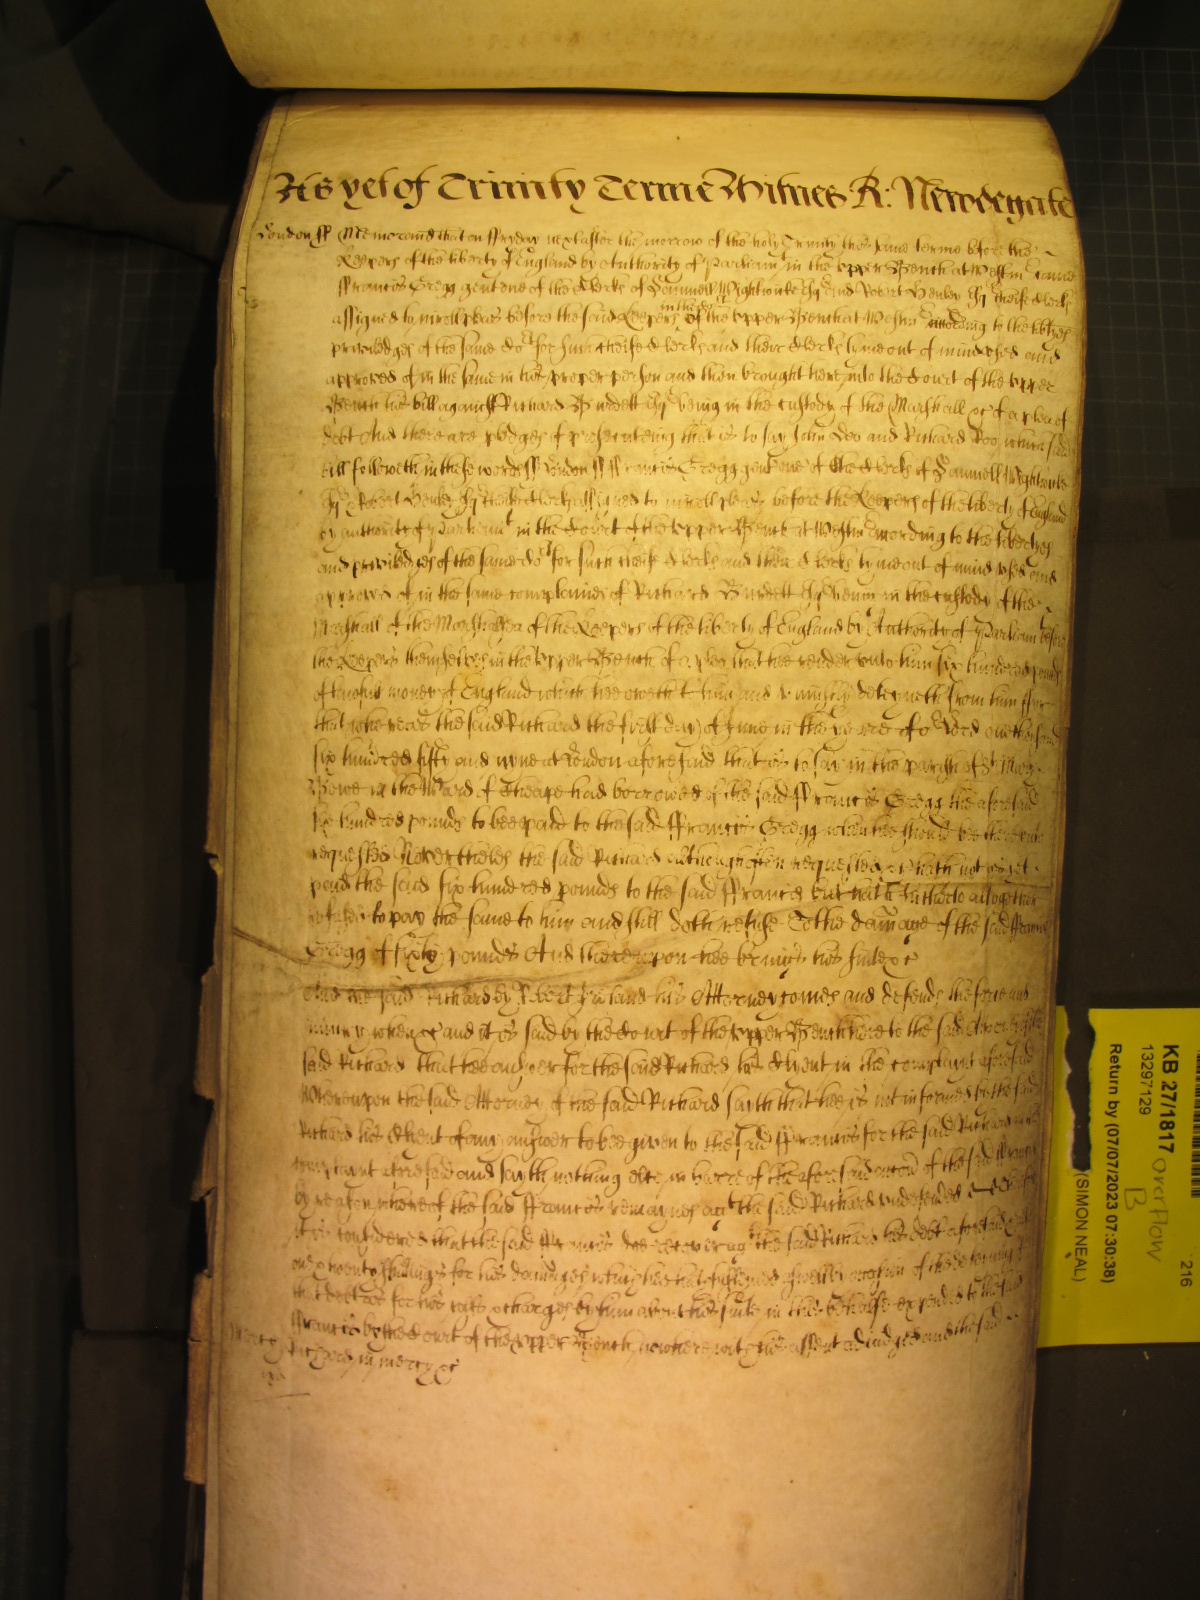 As yet of Trinity Terme Witnes R: Newdegate
London ss Memorand that on ffryday next after the morrow of the holy Trinity this same terme before the
Keepers of the liberty of England by Authority of Parliamt in the upper Bench at Westm came
ffrancis Gregg gent one of the Clerks of Samuell Wightwicke Esq and Robert Henley Esq cheife Clerks
assigned to inroll pleas before the said Keepers in the Cort of the upper Bench at Westm according to the libtyes
priviledges of the same Cort for such cheife Clerks and their Clerks tyme out of mind used and
approved of in the same in his proper person and then brought here into the Court of the upper
Bench his bill against Richard Burdett Esq being in the custody of the Marshall &c of a plea of
debt And there are pledges of prosecuting that is to say John Doo and Richard Roo which said
bill followeth in these words ss London ss ffrancis Gregg gent one of the Clerks of Samuell Wightwicke
Esq Robert Henley Esq cheife Clerks assigned to inroll pleas before the Keepers of the liberty of England
by authority of Parliamt in the Court of the upper Bench at Westm according to the libertyes
and priviledges of the same Cort for such cheife Clerks and their Clerks tyme out of mind used and
approved of in the same complaines of Richard Burdett Esq being in the custody of the
Marshall of the Marshalsea of the Keepers of the liberty of England by Authority of Parliam before
the Keepers themselves in the upper Bench of a plea that he render unto him six hundred pounds
of lawfull money of England which hee oweth to him and unjustly deteyneth from him ffor
that whereas the said Richard the first day of June in the yeare of or Lord one thousand
six hundred fifty and nyne at London aforesaid that is to say in the parish of St Mary
Bowe in the Ward of Cheape had borrowed of the said ffrancis Gregg the aforesaid
six hundred pounds to bee paid to the said ffrancis Gregg when hee should bee thereunto
requested Neverthelesse the said Richard although often requested &c hath not as yet
paid the said six hundred pounds to the said ffrancis but hath hitherto altogether
refused to pay the same to him and still doth refuse To the damage of the said ffrancis
Gregg of sixty pounds And thereupon hee brings his suite &c
And the said Richard by Robert Ireland his Attorney comes and defends the force and
iniury when &c and it is said by the Court of the upper Bench here to the said Attorney of the
said Richard that hee answer for the said Richard his Client in the complaint aforesaid
Whereupon the said Attorney of the said Richard sayth that hee is not informed by the said
Richard his Client of any answer to bee given to the said ffrancis for the said Richard in the
complaint aforesaid and sayth nothing else in barre of the aforesaid accon of the said ffrancis
by reason whereof the said ffrancis remaynes agt the said Richard undefended
it is considered that the said ffrancis doe recover agt the said Richard his debt aforesaid
and twenty shillings for his damages which hee hath susteyned aswell by occasion of the deteyning of
that debt as for his costs & charges by him about his suite in this behalfe expended to the said
ffrancis by the Court of the upper Bench now here with his assent adiudged and the said
Richard in mercy &c
Mercy
KB 27/1817 overflow
13297129
B
Return by (07/07/2023 07:30:38)
(SIMON NEAL)
216